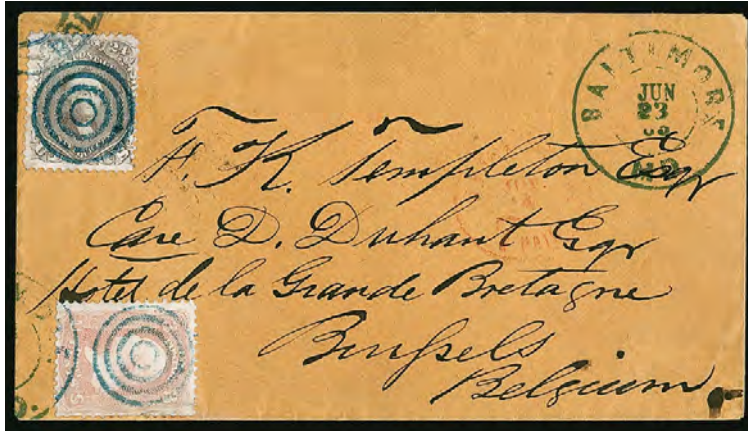 BALTIMORE
JUN
23
MD
24
H. K. Templeton Esqr
Care D. Duhant Esqr
Hotel de la Grande Bretagne
Brussels
Belgium
3